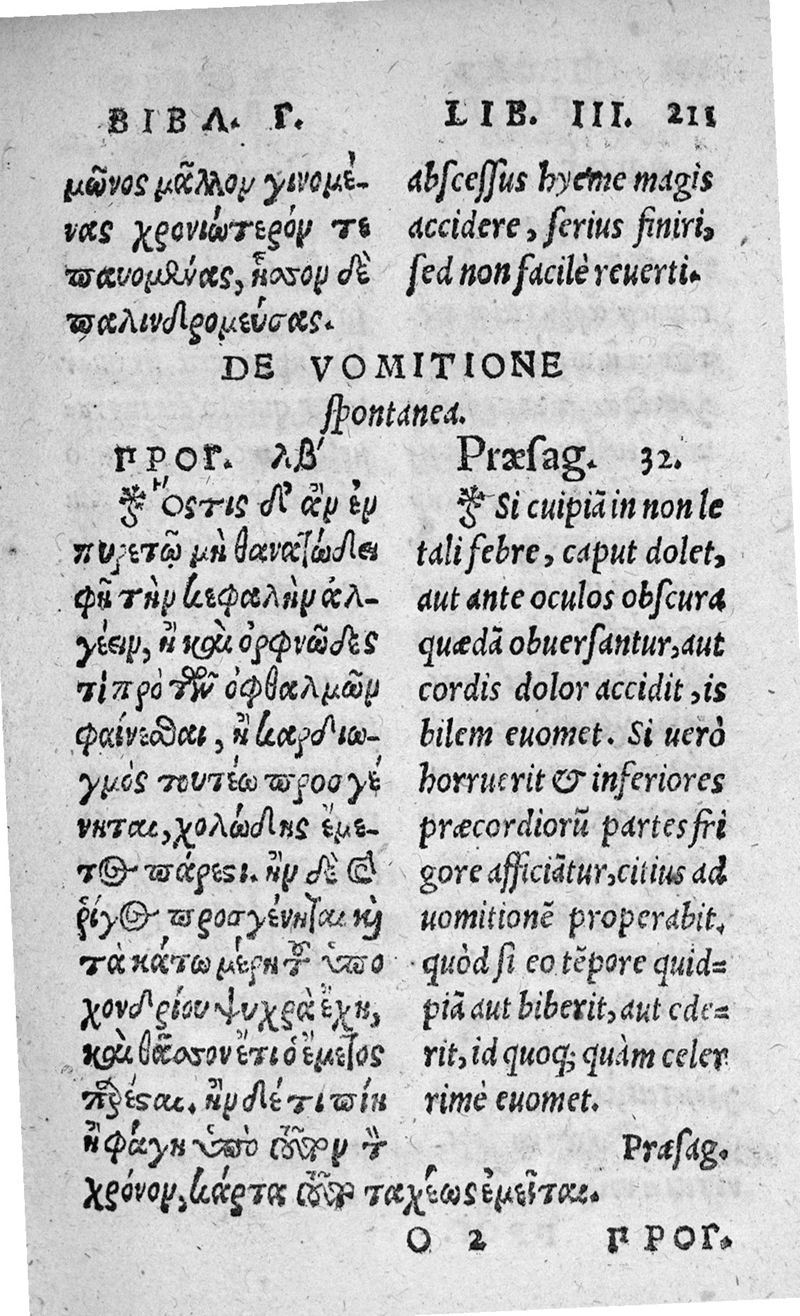 ΒΙΒΛ. Γ.
μῶνος μᾶλλον γινομέ-
νας χρονιώτερόν τε
παυομένας, ἧσσον δὲ
παλινδρομεύσας.
LIB. III. 211
abſceſſus hyeme magis
accidere, ſerius finiri,
ſed non facilè reuerti.
DE VOMITIONE
ſpontanea.
ΠΡΟΓ. λβ´
Ὅστις δ' ἂν ἐν
πυρετῷ μὴ θανατώδει
φῇ τὴν κεφαλὴν ἀλ-
γέειν, ἢ καὶ ὀρφνῶδες
τι πρὸ τῶν ὀφθαλμῶν
φαίνεσθαι, ἢ καρδιω-
γμὸς τουτέω προσγέ
νηται, χολώδης ἔμε-
τος πάρεστι. ἢν δὲ καὶ
ῥίγος προσγένηται καὶ
τὰ κάτω μέρη τοῦ ὑπο
χονδρίου ψυχρὰ ἔχῃ,
καὶ θᾶσσον ἔτι ὁ ἔμετος
παρέσται. ἢν δέ τι πίῃ
ἢ φάγῃ ὑπὸ τοῦτον τὸν
χρόνον, κάρτα ταχέως ἐμεῖται.
Præſag. 32.
Si cuipiã in non le
tali febre, caput dolet,
aut ante oculos obſcura
quædã obuerſantur, aut
cordis dolor accidit, is
bilem euomet. Si uerò
horruerit & inferiores
præcordiorũ partes fri
gore afficiãtur, citius ad
uomitionẽ properabit.
quòd ſi eo tẽpore quid=
piã aut biberit, aut ede=
rit, id quoq; quàm celer
rimè euomet.
Præſag.
O 2 ΠΡΟΓ.